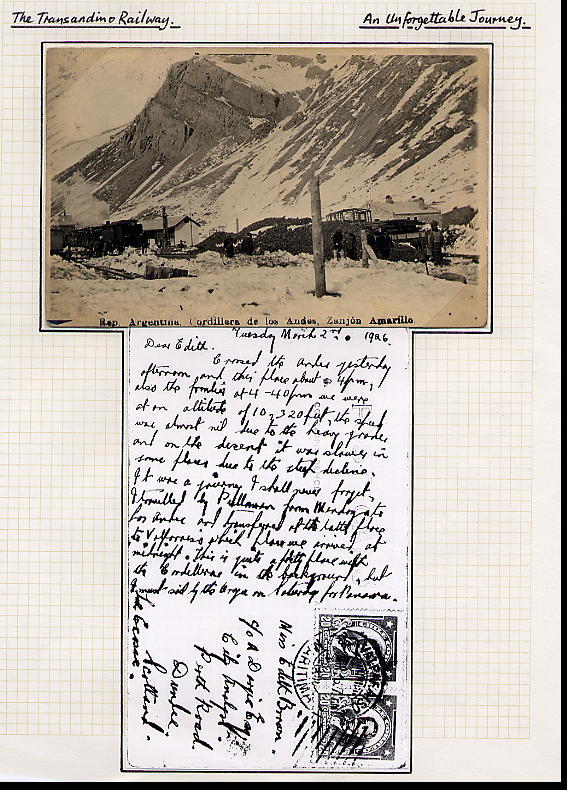 The Transandino Railway.
An Unforgettable Journey.
Rep. Argentina, Cordillera de los Andes, Zanjón Amarillo
Tuesday March 2nd. 1926.
Dear Edith.
Crossed the Andes yesterday
afternoon, and this place about 4pm,
also the frontier at 4-40pm we were
at an altitude of 10,320 feet, the speed
was almost nil due to the heavy grades,
and on the descent it was slower in
some places due to the steep decline.
It was a journey I shall never forget,
I travelled by Pullman from Mendoza to
Los Andes and transferred at the latter place
to Valparaiso which place we arrived at
midnight. This is quite a pretty place with
the Cordilleras in the background, but
I must sail by the on Saturday for Panama.
Miss Edith
c/o A
City
Perth Road.
Dundee
Scotland.